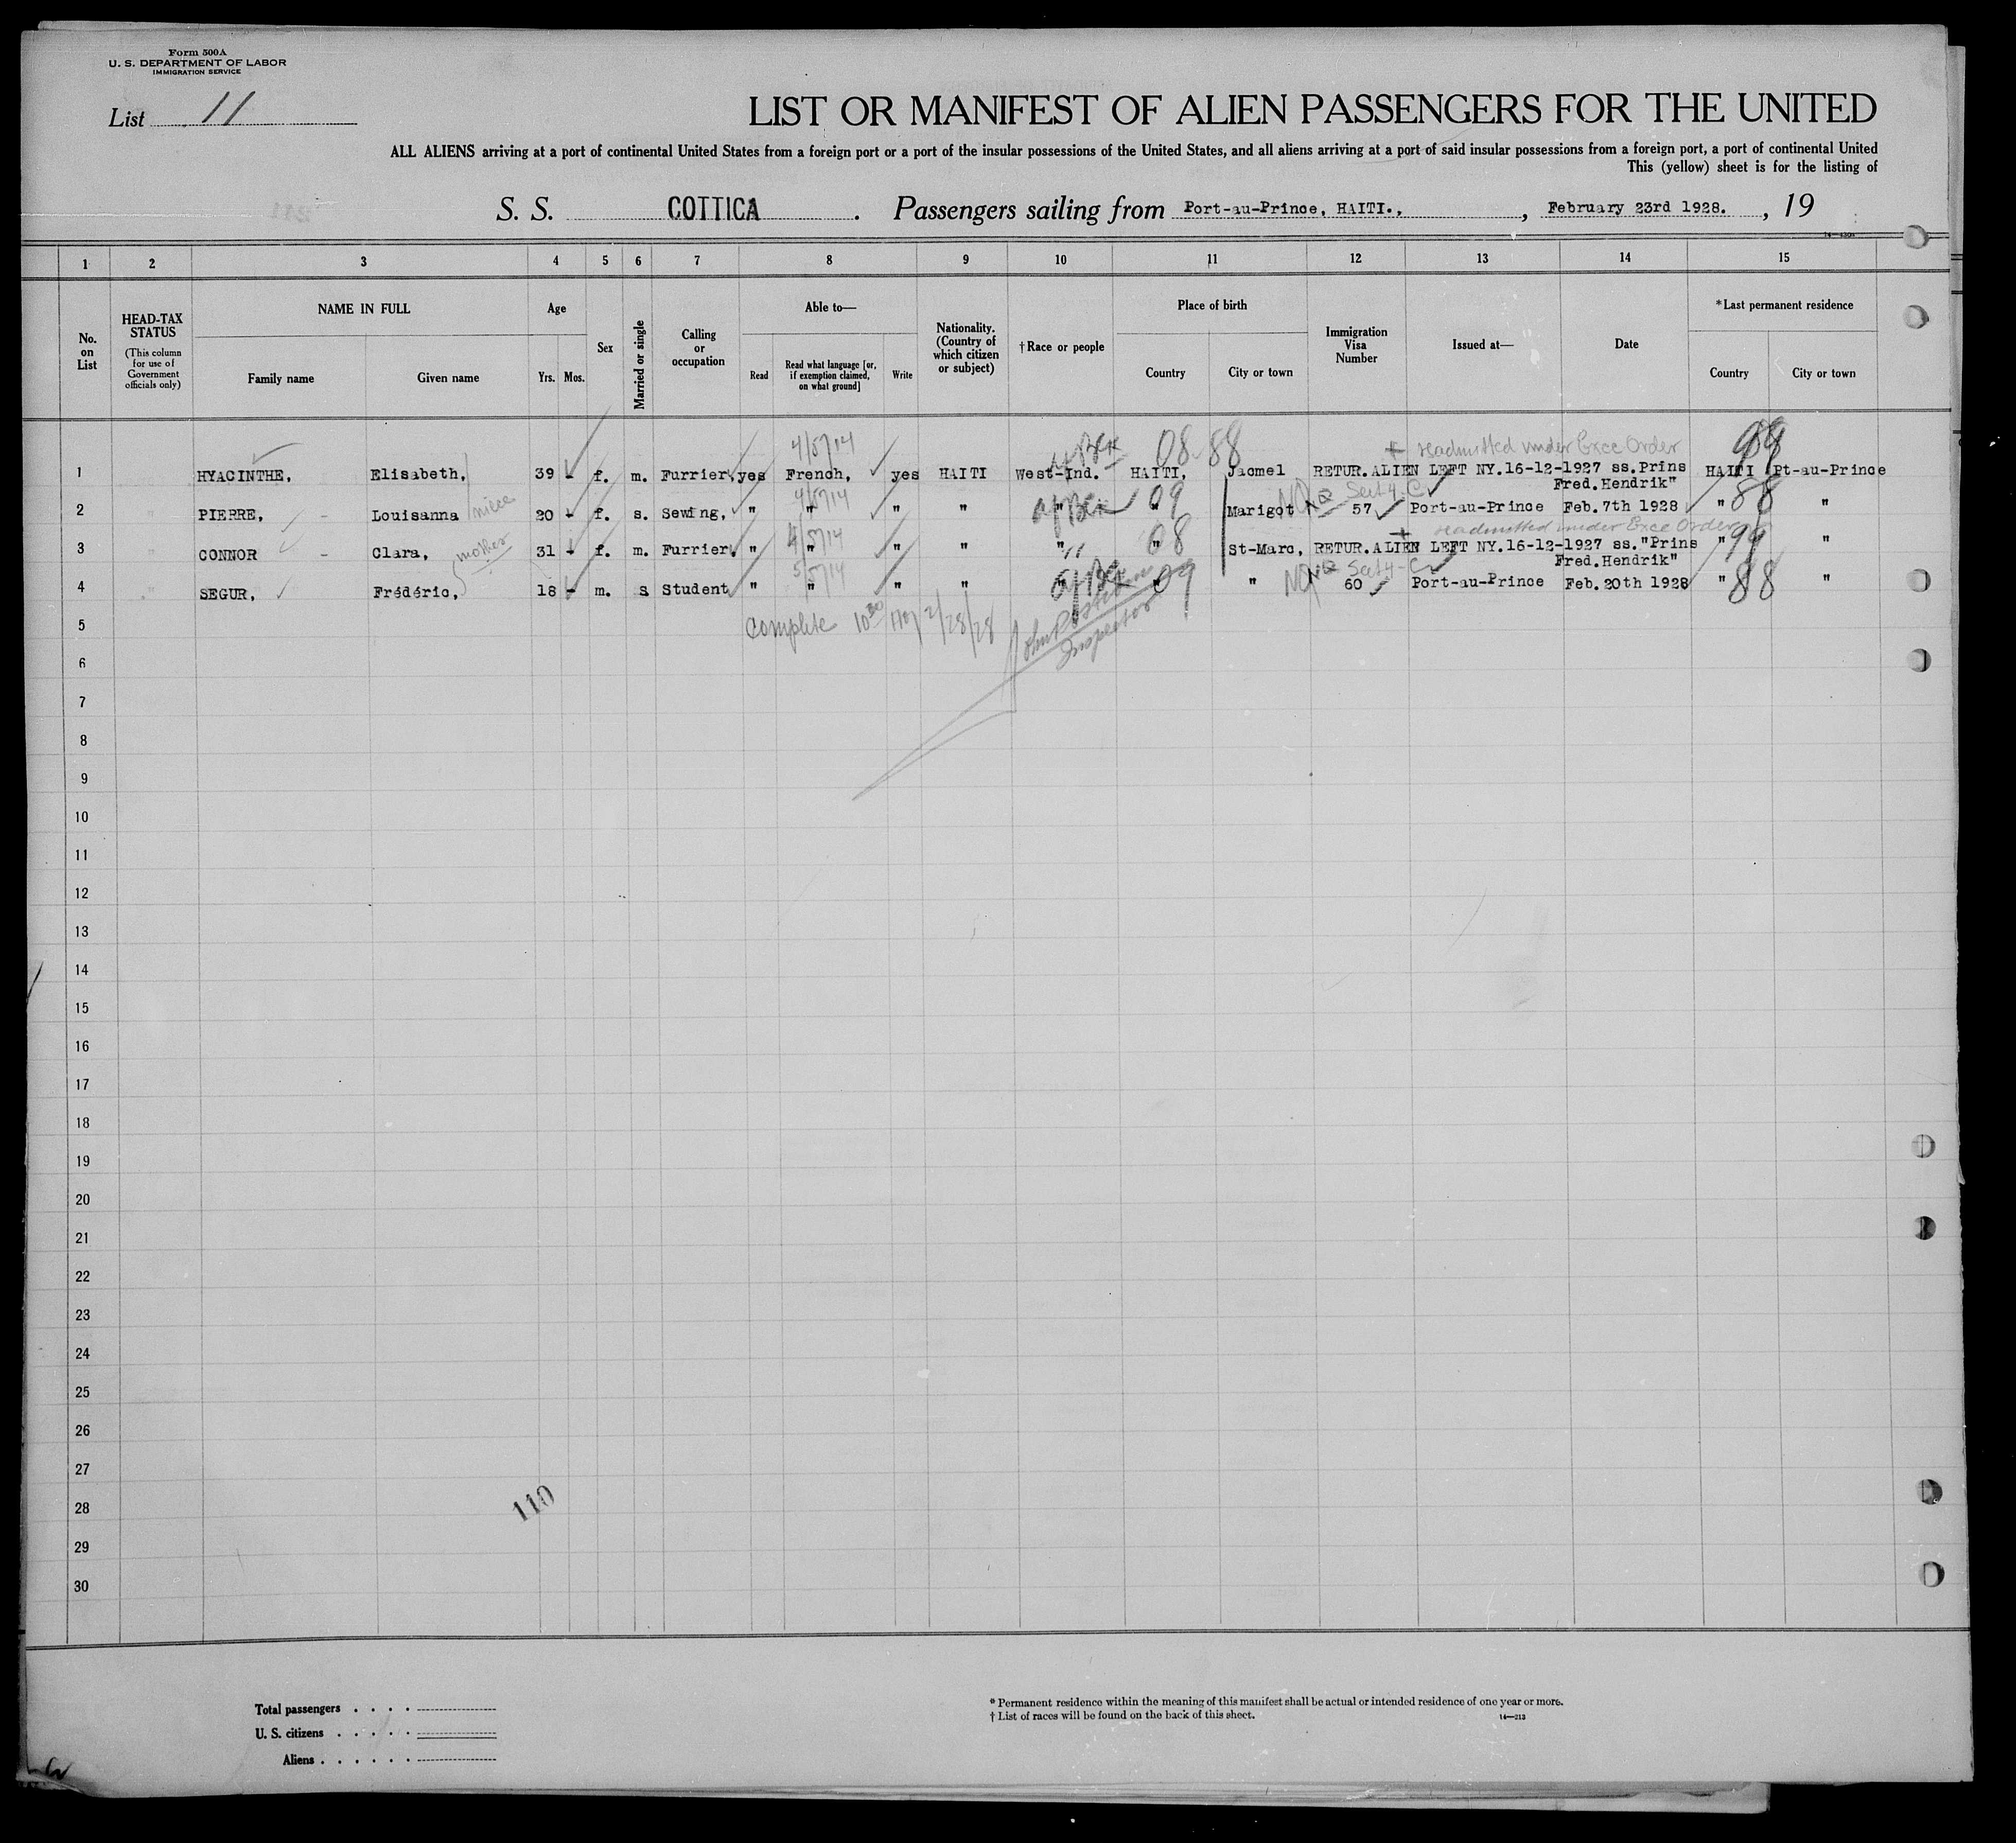 Form 500A
U. S. DEPARTMENT OF LABOR
IMMIGRATION SERVICE
List 11
LIST OR MANIFEST OF ALIEN PASSENGERS FOR THE UNITED
ALL ALIENS arriving at a port of continental United States from a foreign port or a port of the insular possessions of the United States, and all aliens arriving at a port of said insular possessions from a foreign port, a port of continental United
This (yellow) sheet is for the listing of
S. S. COTTICA . Passengers sailing from Port-au-Prince, HAITI., , February 23rd 1928. , 19
1 2 3 4 5 6 7 8 9 10 11 12 13 14 15
No. on List
HEAD-TAX STATUS (This column for use of Government officials only)
NAME IN FULL
Family name Given name
Age
Yrs. Mos.
Sex
Married or single
Calling or occupation
Able to—
Read Read what language [or, if exemption claimed, on what ground] Write
Nationality. (Country of which citizen or subject)
† Race or people
Place of birth
Country City or town
Immigration Visa Number
Issued at—
Date
* Last permanent residence
Country City or town
4/5/14 08 88 + readmitted under Exce Order 99
1 HYACINTHE, Elisabeth, 39 - f. m. Furrier, yes French, yes HAITI West-Ind. HAITI, Jacmel RETUR.ALIEN LEFT NY.16-12-1927 ss.Prins HAITI Pt-au-Prince
Fred.Hendrik"
niece 4/5/14 09 NQ Sect 4-C 88
2 PIERRE, Louisanna 20 - f. s. Sewing, " " " " " " Marigot 57 Port-au-Prince Feb. 7th 1928 " "
mother 4/5/14 08 + readmitted under Exce Order 99
3 CONNOR Clara, 31 - f. m. Furrier. " " " " " " St-Marc, RETUR.ALIEN LEFT NY.16-12-1927 ss."Prins " "
Fred.Hendrik"
5/5/14 09 NQ Sect 4-C 88
4 SEGUR, Frédéric, 18 - m. s Student " " " " " " " 60 Port-au-Prince Feb. 20th 1928 " "
Complete 10 30 2/28/28
Inspector
5
6
7
8
9
10
11
12
13
14
15
16
17
18
19
20
21
22
23
24
25
26
27
28
110
29
30
Total passengers . . . .
U. S. citizens . . . . .
Aliens . . . . . .
* Permanent residence within the meaning of this manifest shall be actual or intended residence of one year or more.
† List of races will be found on the back of this sheet.
14—213